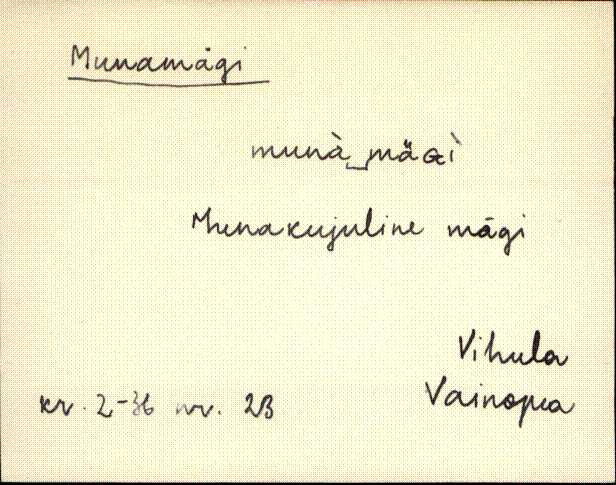 Munamägi
munà‿mäGì
Munakujuline mägi
Vihula
Vainopea
kr. 2-36 nr. 23